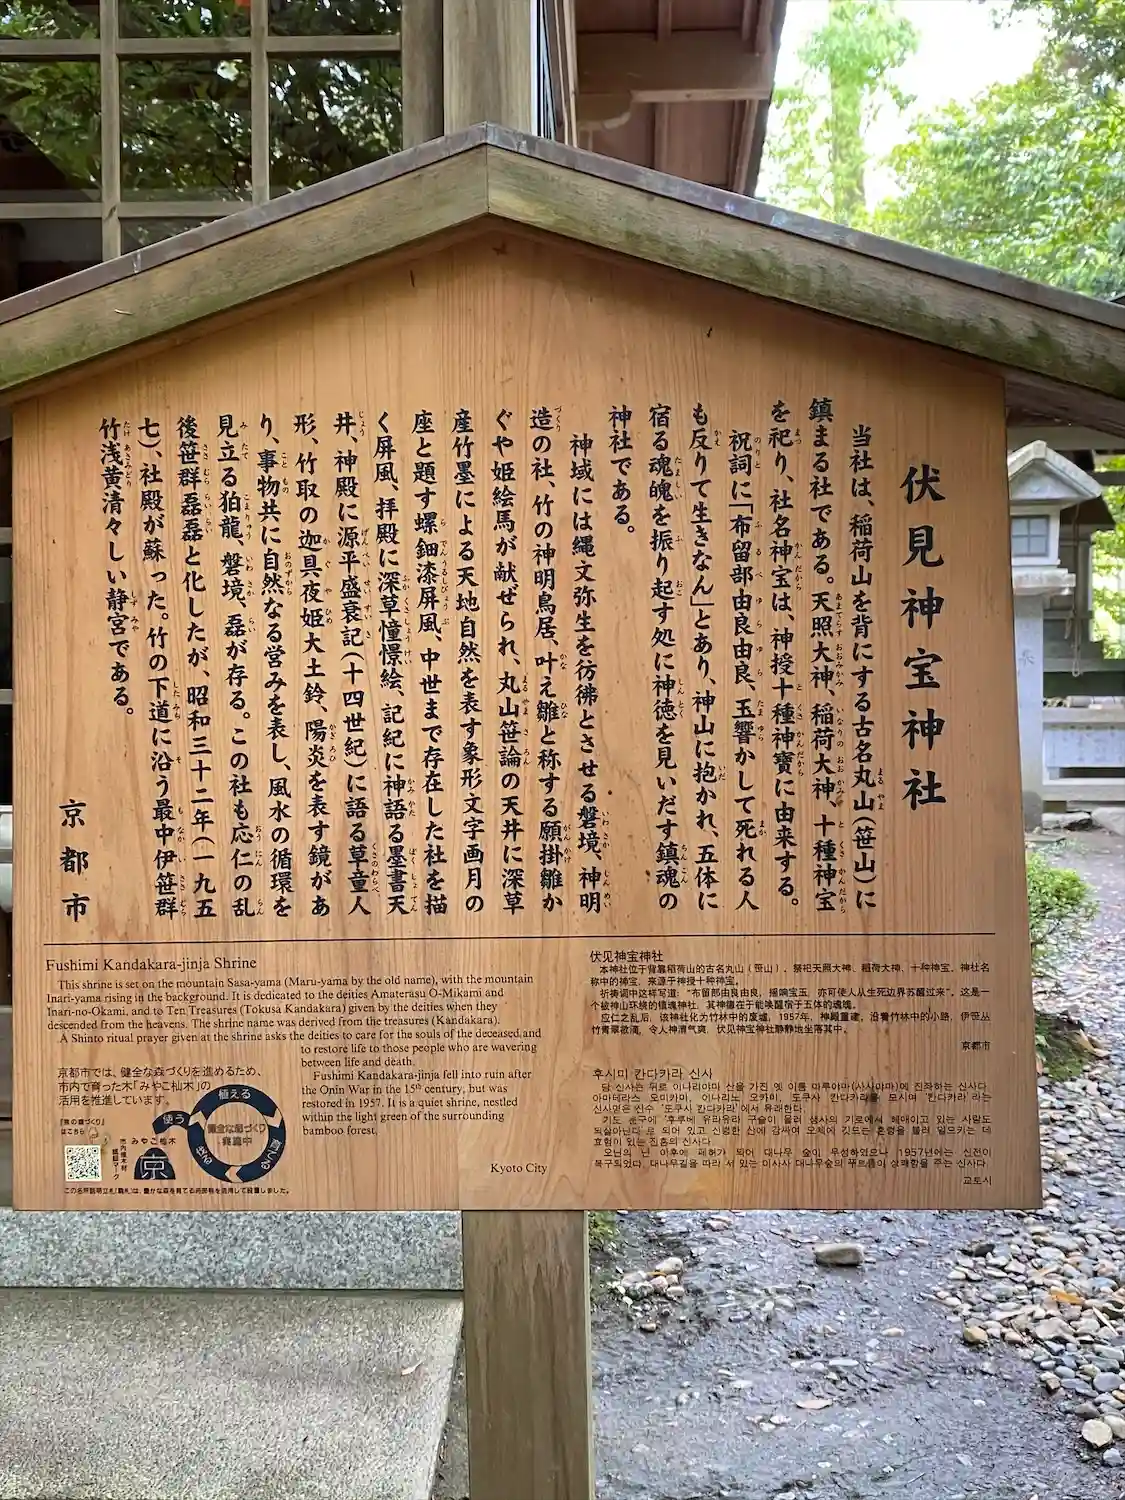 伏見神宝神社
当社は、稲荷山を背にする古名丸山(笹山)に
鎮まる社である。天照大神、稲荷大神、十種神宝
を祀り、社名神宝は、神授十種神寶に由来する。
祝詞に「布留部由良由良、玉響かして死れる人
も反りて生きなん」とあり、神山に抱かれ、五体に
宿る魂魄を振り起す処に神徳を見いだす鎮魂の
神社である。
神域には縄文弥生を彷彿とさせる磐境、神明
造の社、竹の神明鳥居、叶え雛と称する願掛雛か
ぐや姫絵馬が献ぜられ、丸山笹論の天井に深草
産竹墨による天地自然を表す象形文字画月の
座と題す螺鈿漆屏風、中世まで存在した社を描
く屏風、拝殿に深草憧憬絵、記紀に神語る墨書天
井、神殿に源平盛衰記(十四世紀)に語る草童人
形、竹取の迦具夜姫大土鈴、陽炎を表す鏡があ
り、事物共に自然なる営みを表し、風水の循環を
見立る狛龍、磐境、磊が存る。この社も応仁の乱
後笹群磊磊と化したが、昭和三十二年(一九五
七)、社殿が蘇った。竹の下道に沿う最中伊笹群
竹浅黄清々しい静宮である。
京都市
Fushimi Kandakara-jinja Shrine
This shrine is set on the mountain Sasa-yama (Maru-yama by the old name), with the mountain
Inari-yama rising in the background. It is dedicated to the deities Amaterasu O-Mikami and
Inari-no-Okami, and to Ten Treasures (Tokusa Kandakara) given by the deities when they
descended from the heavens. The shrine name was derived from the treasures (Kandakara).
A Shinto ritual prayer given at the shrine asks the deities to care for the souls of the deceased and
to restore life to those people who are wavering
between life and death.
Fushimi Kandakara-jinja fell into ruin after
the Onin War in the 15th century, but was
restored in 1957. It is a quiet shrine, nestled
within the light green of the surrounding
bamboo forest.
Kyoto City
京都市では、健全な森づくりを進めるため、
市内で育った木「みやこ杣木」の
活用を推進しています。
「京の森づくり」
はこちら
植える
使う
育てる
健全な森づくり
実施中
みやこ杣木
京
伏见神宝神社
本神社位于背靠稻荷山的古名丸山（笹山），祭祀天照大神、稻荷大神、十种神宝。神社名
称中的神宝，来源于神授十种神宝。
祈祷词中这样写道："布留部由良由良，摇响宝玉，亦可使人从生死边界苏醒过来"。这是一
个被神山环绕的镇魂神社，其神德在于能唤醒宿于五体的魂魄。
应仁之乱后，该神社化为竹林中的废墟，1957年，神殿重建。沿着竹林中的小路，伊笹丛
竹青翠欲滴，令人神清气爽，伏见神宝神社静静地坐落其中。
京都市
후시미 칸다카라 신사
당 신사는 뒤로 이나리야마 산을 가진 옛 이름 마루야마(사사야마)에 진좌하는 신사다.
아마테라스 오미카미, 이나리노 오카미, 도쿠사 칸다카라를 모시며 '칸다카라'라는
신사명은 신수 '도쿠사 칸다카라'에서 유래한다.
교토시